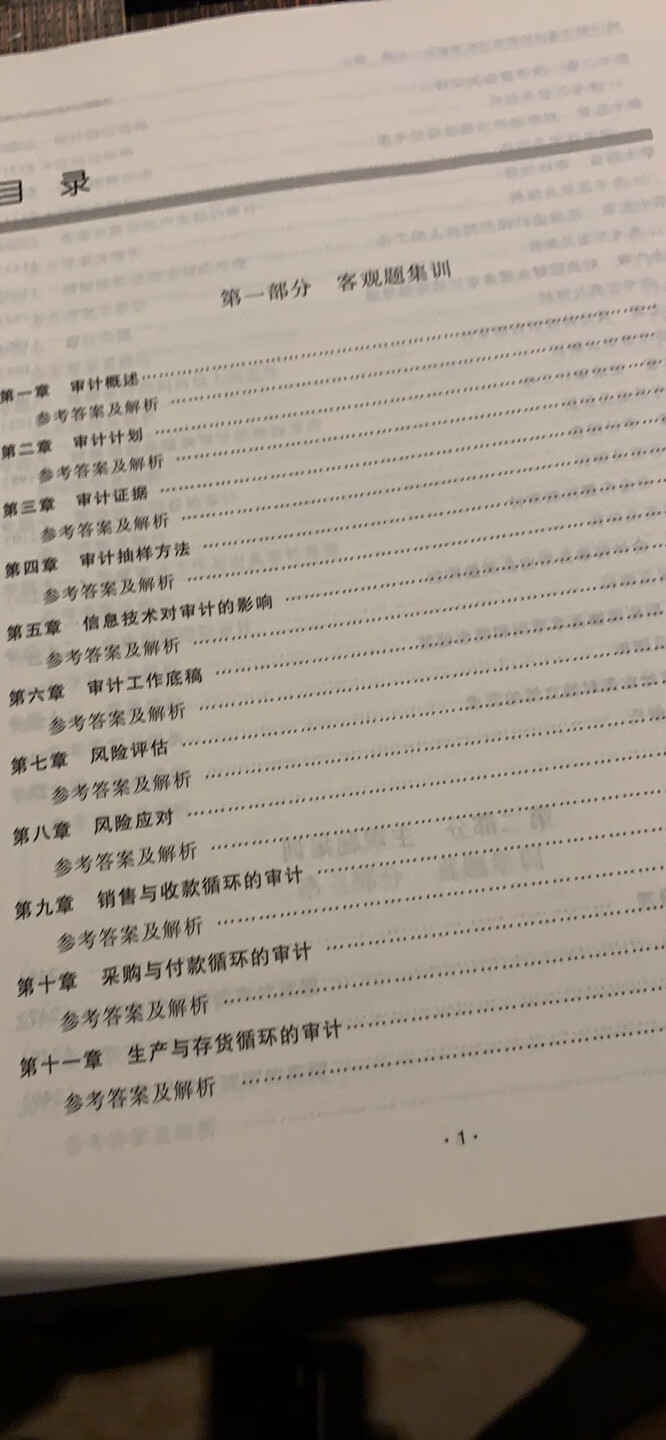 目 录
第一部分 客观题集训
第一章 审计概述……………………………………………………
参考答案及解析……………………………………………………
第二章 审计计划……………………………………………………
参考答案及解析……………………………………………………
第三章 审计证据……………………………………………………
参考答案及解析……………………………………………………
第四章 审计抽样方法………………………………………………
参考答案及解析……………………………………………………
第五章 信息技术对审计的影响……………………………………
参考答案及解析……………………………………………………
第六章 审计工作底稿………………………………………………
参考答案及解析……………………………………………………
第七章 风险评估……………………………………………………
参考答案及解析……………………………………………………
第八章 风险应对……………………………………………………
参考答案及解析……………………………………………………
第九章 销售与收款循环的审计……………………………………
参考答案及解析……………………………………………………
第十章 采购与付款循环的审计……………………………………
参考答案及解析……………………………………………………
第十一章 生产与存货循环的审计…………………………………
参考答案及解析……………………………………………………
·1·